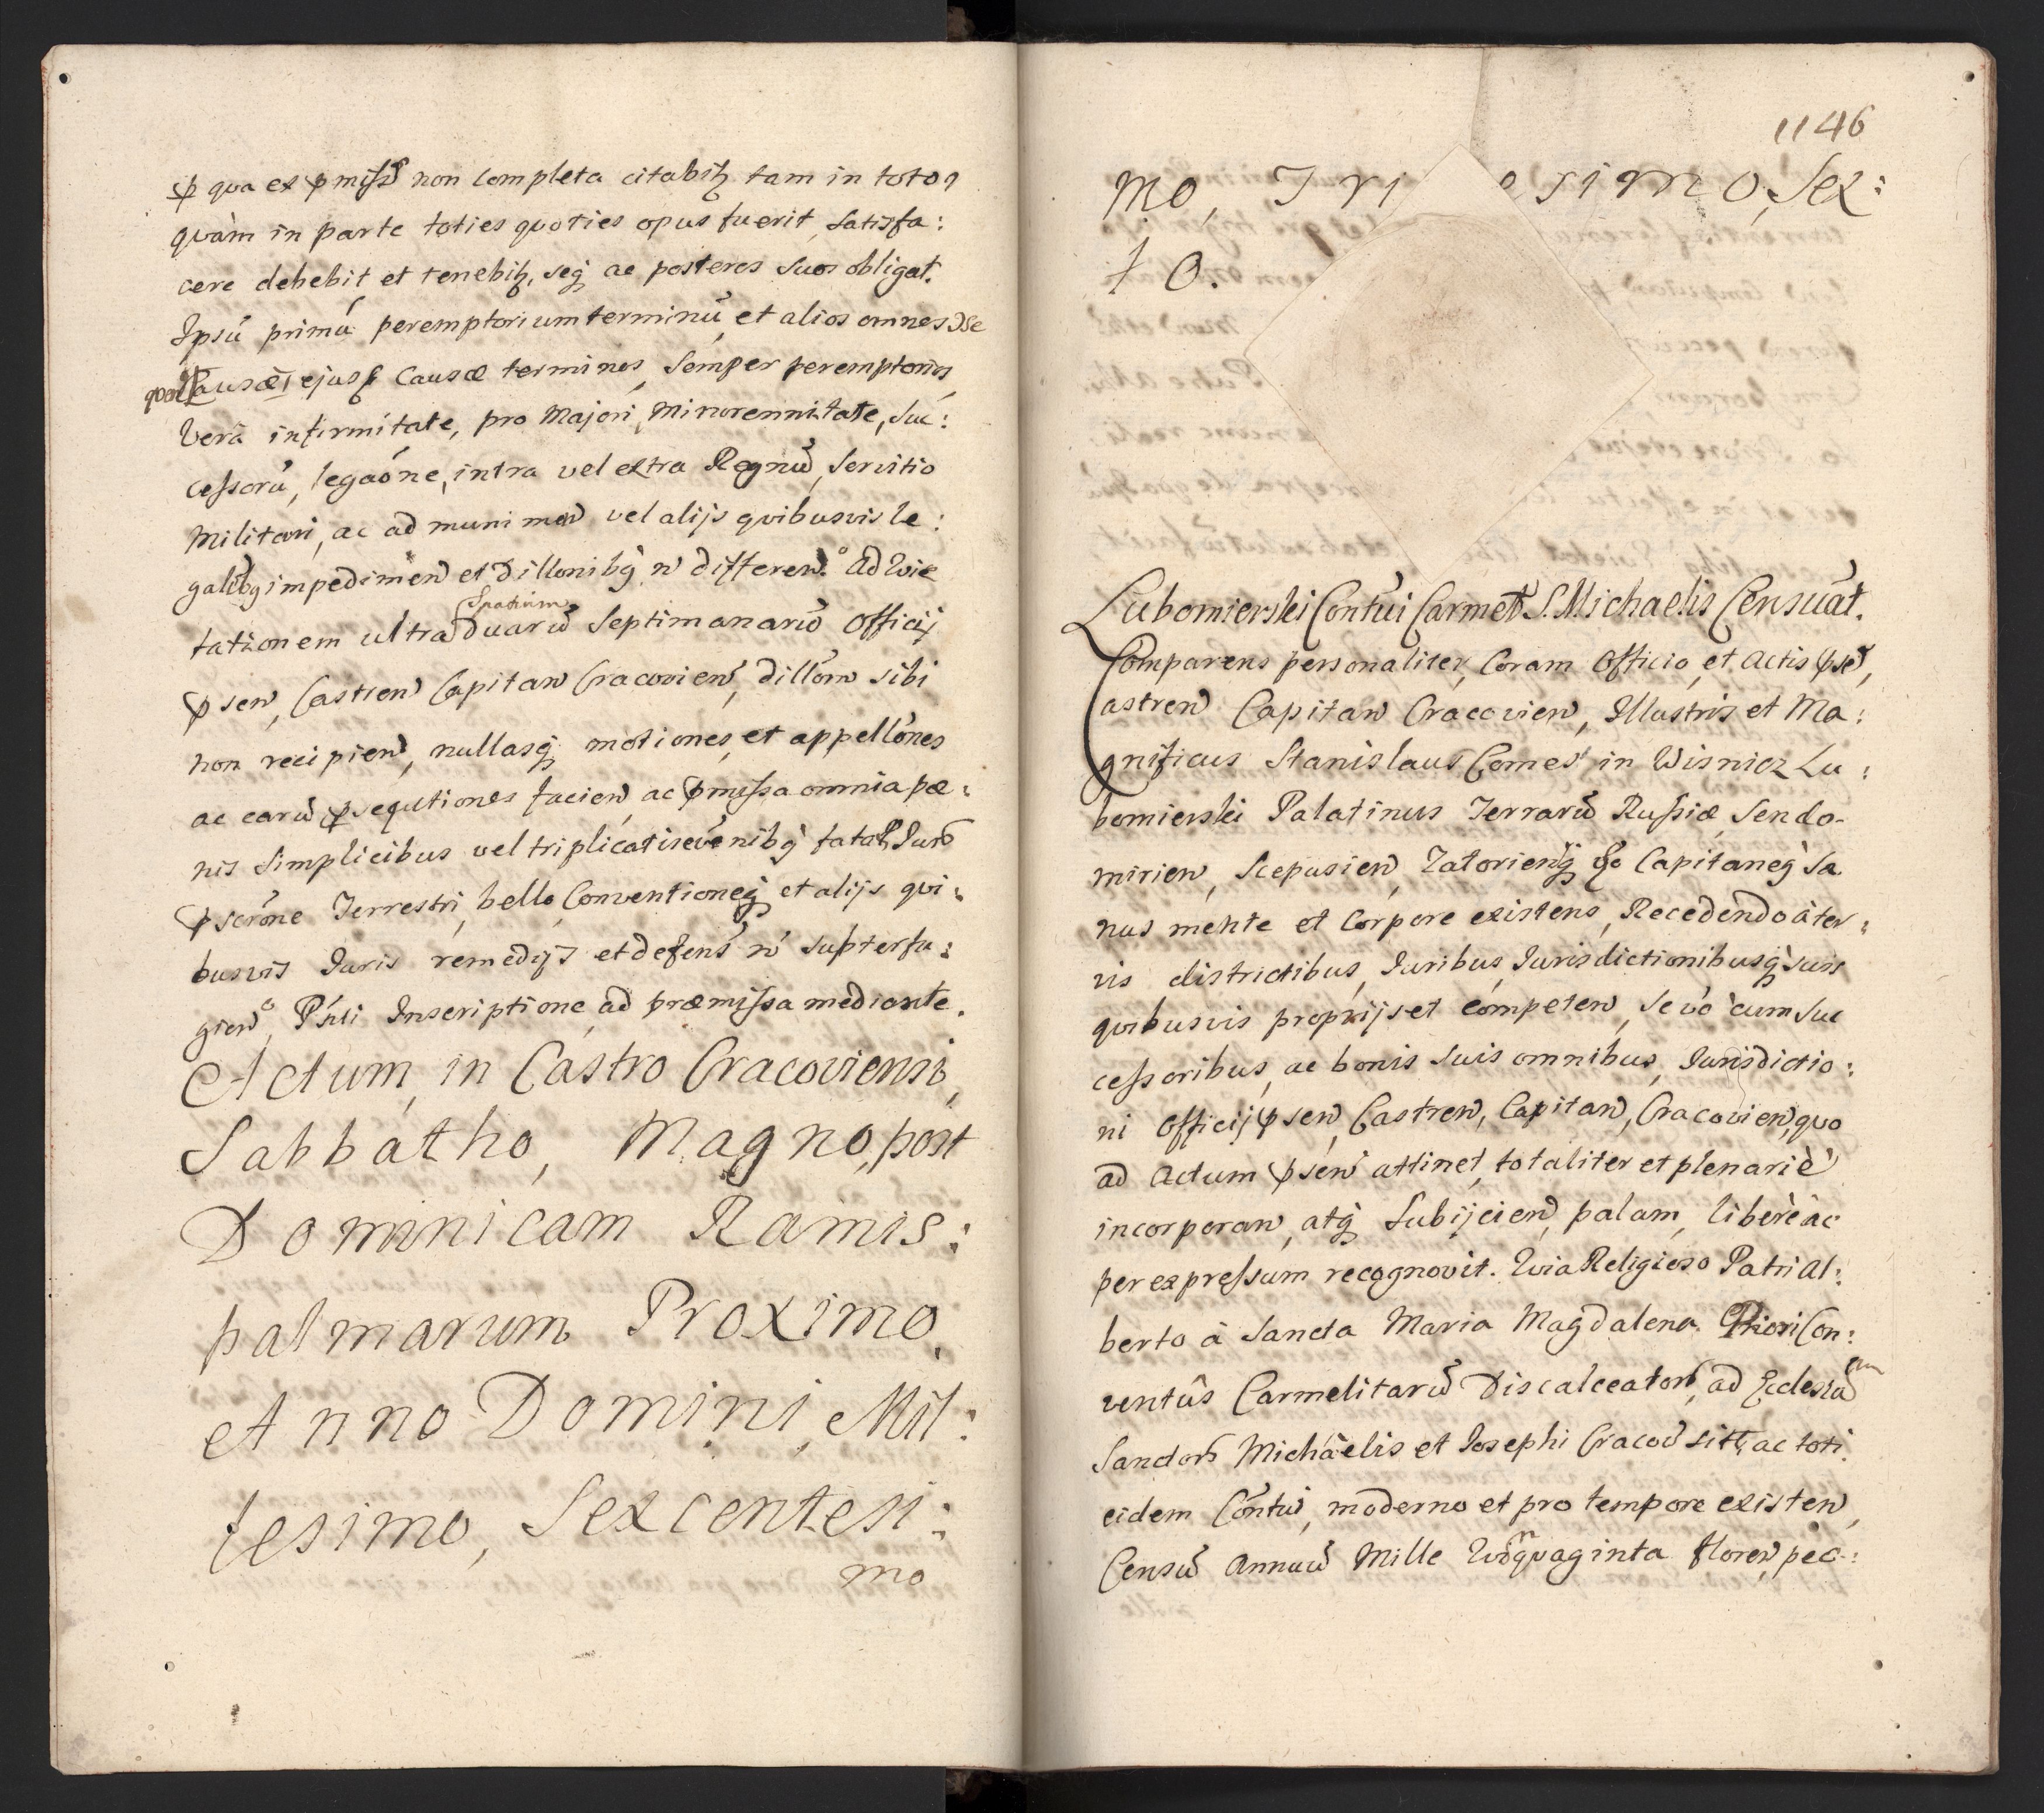 qua ex pmiss non completa citabit tam in toto,
quàm in parte toties quoties opus fuerit, satisfa:
cere debebit et tenebit, seq ac posteros suos obligat.
Ipsú primú peremptorium terminũ, et alios omnes
causæ ejusq causæ terminos, semper peremptorios,
Verâ infirmitate, pro Majori, Minorennitate, suc:
cessorú, legaóne, intra vel extra Regnũ, servitio
Militari, ac ad munimen vel alijs quibusvis le:
galibq impedimen et Dillonibq n̄ differen. Ad
tationem ultra spatium duarũ septimanarũ Officij
psen, Castren Capitan Cracovien, dillom sibi
non recipien, nullasq motiones, et appellónes
ac earũ psequtiones facien, ac pmissa omnia pæ:
nis simplicibus vel triplicatis
pscróne Terrestri, bello Conventioneq et alijs qui:
busvis Juris remedijs et defens n̄ subterfu:
gien, Inscriptione ad præmissa mediante.
Actum, in Castro Cracoviensi,
Sabbatho, Magno, post
Dominicam Ramis:
palmarum Proximo,
Anno Domini, Mil:
lesimo, Sexcentesi:
mo
1146
mo, Tri esimo, Sex:
to.
Lubomierski Contúi Carmet S. Michaelis Censuat.
Comparens personaliter, Coram Officio, et Actis pse,
Castren Capitan Cracovien, Illustris et Ma:
gnificus Stanislaus Comes in Wisnicz Lu:
bomierski Palatinus Terrarũ Russiæ, Sendo-
mirien, Scepusien, Zatorienq &c Capitaneq Sa
nus mente et corpore existens, Recedendo à ter:
ris districtibus, Juribus, Jurisdictionibusq suis
quibusvis proprijs et competen, se vó cum suc
cessoribus, ac bonis suis omnibus, Jurisdictio:
ni Officij psen, Castren, Capitan, Cracovien, quo
ad Actum psen attinet, totaliter et plenariè
incorporan, atq subijcien, palam, liberè ac
per expressum recognovit. Quia Religioso Patri Al:
berto à Sancta Maria Magdalena Priori Con:
ventûs Carmelitarũ Discalceator, ad Ecclesiam
Sanctor Michäelis et Josephi Cracov sit, ac toti
eidem Contui, moderno et pro tempore existen,
Censũ Annuũ Mille Quinquaginta floren, pec: